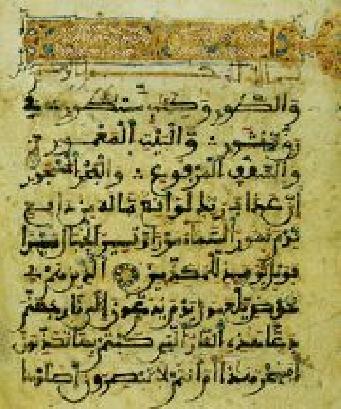 بسم الله الرحمن الرحيم
والطور وكتب مسطور في
رق منشور والبيت المعمور
والسقف المرفوع والبحر المسجور
ان عذاب ربك لواقع ما له من دافع
يوم تمور السماء مورا وتسير الجبال سيرا
فويل يومئذ للمكذبين الذين هم في
خوض يلعبون يوم يدعون الى نار جهنم
دعا هذه النار التي كنتم بها تكذبون
افسحر هذا ام انتم لا تبصرون اصلوها